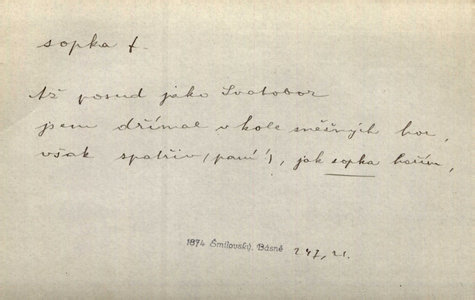 sopka f.
Až posud jako Svatobor
jsem dřímal v kole sněžných hor,
však spatřiv (paní), jak sopka hořím,
1874 Šmilovský, Básně 247, 21.